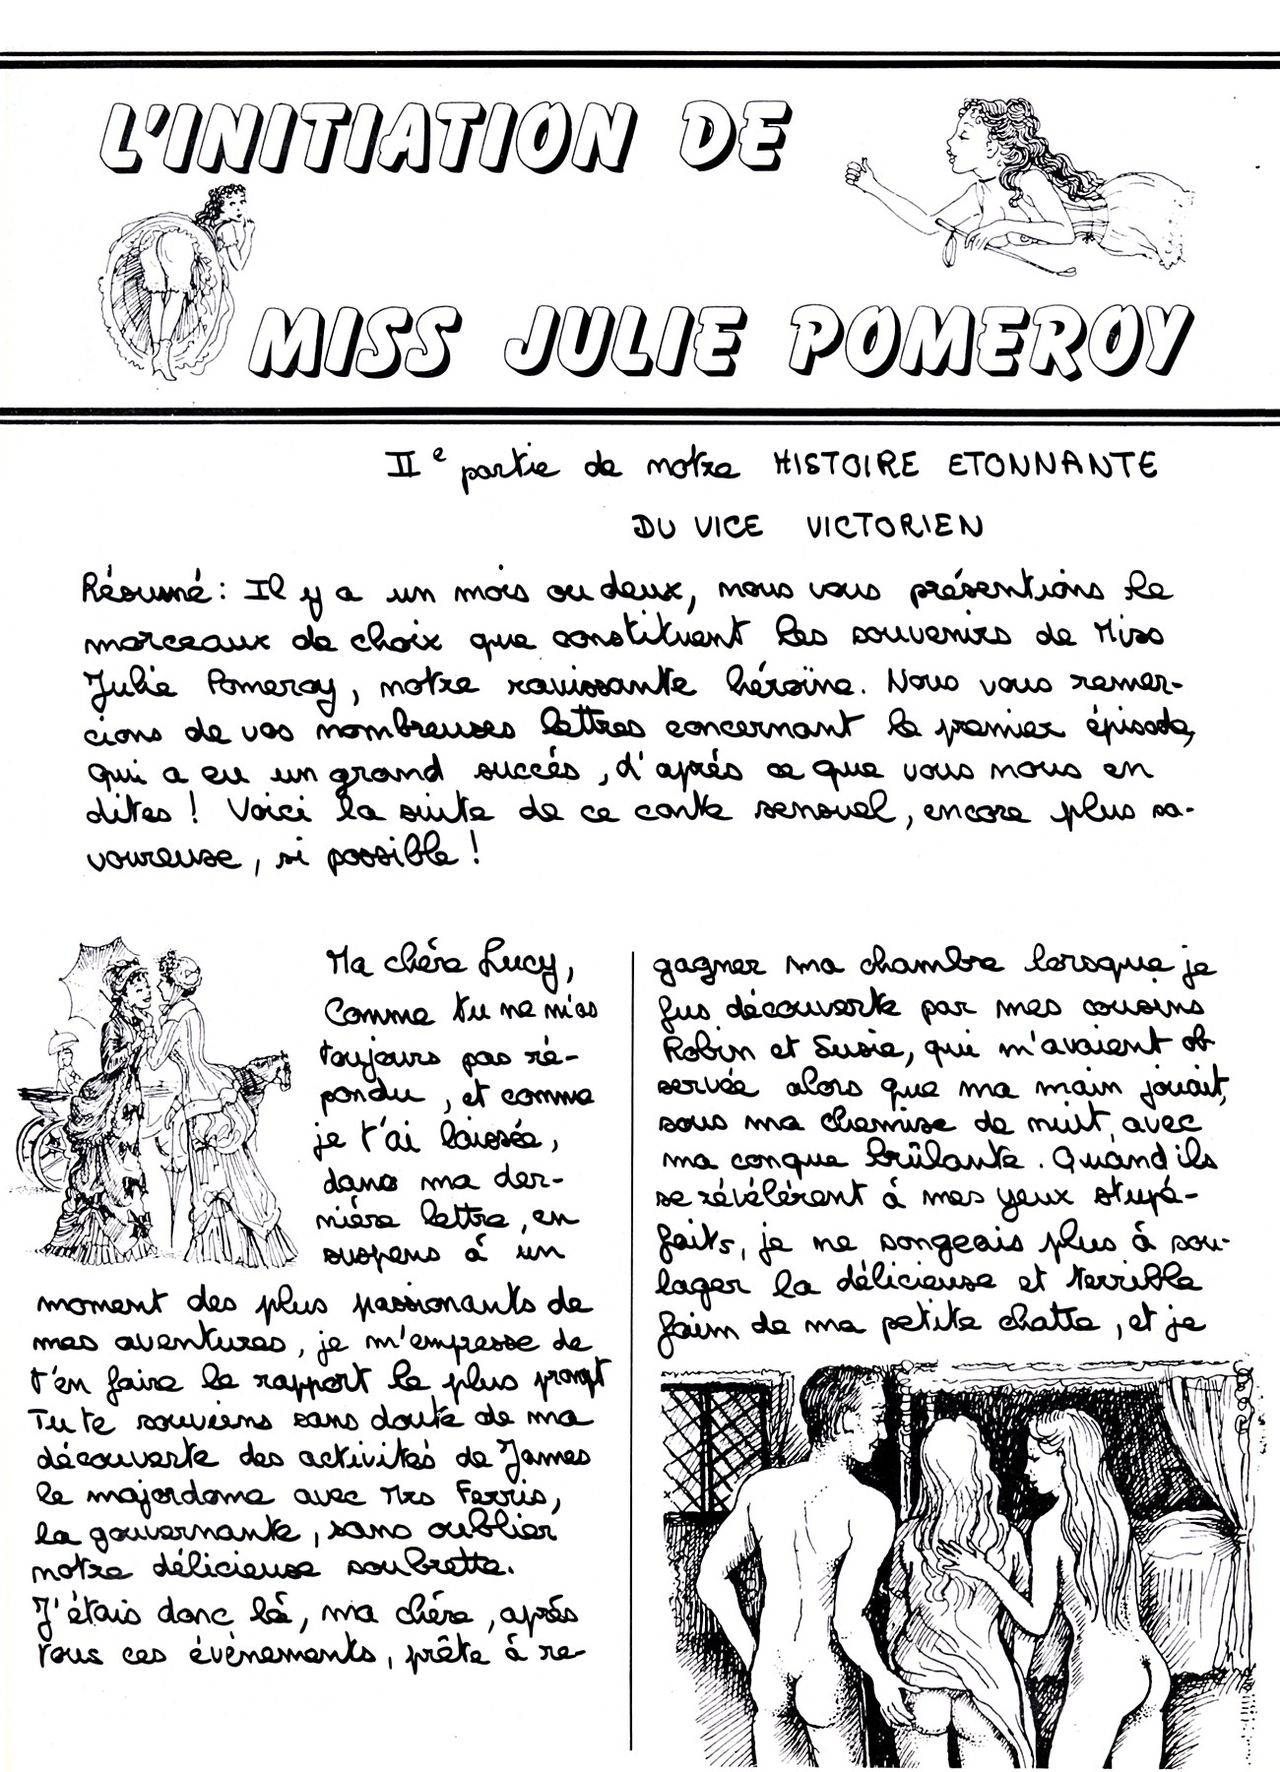 L'INITIATION DE
MISS JULIE POMEROY
IIe partie de notre HISTOIRE ETONNANTE
DU VICE VICTORIEN
Résumé : Il y a un mois ou deux, nous vous présentions le
morceaux de choix que constituent les souvenirs de Miss
Julie Pomeroy, notre ravissante héroïne. Nous vous remer-
cions de vos nombreuses lettres concernant le premier épisode,
qui a eu un grand succès, d'après ce que vous nous en
dites ! Voici la suite de ce conte sensuel, encore plus sa-
voureuse, si possible !
Ma chère Lucy,
Comme tu ne m'as
toujours pas ré-
pondu, et comme
je t'ai laissée,
dans ma der-
nière lettre, en
suspens à un
moment des plus passionants de
mes aventures, je m'empresse de
t'en faire le rapport le plus prompt
Tu te souviens sans doute de ma
découverte des activités de James
le majordome avec Mrs Ferris,
la gouvernante, sans oublier
notre délicieuse soubrette.
J'étais donc là, ma chère, après
tous ces évènements, prête à re-
gagner ma chambre lorsque je
fus découverte par mes cousins
Robin et Susie, qui m'avaient ob
servée alors que ma main jouait,
sous ma chemise de nuit, avec
ma conque brûlante. Quand ils
se révélèrent à mes yeux stupé-
faits, je ne songeais plus à sou-
lager la délicieuse et terrible
faim de ma petite chatte, et je